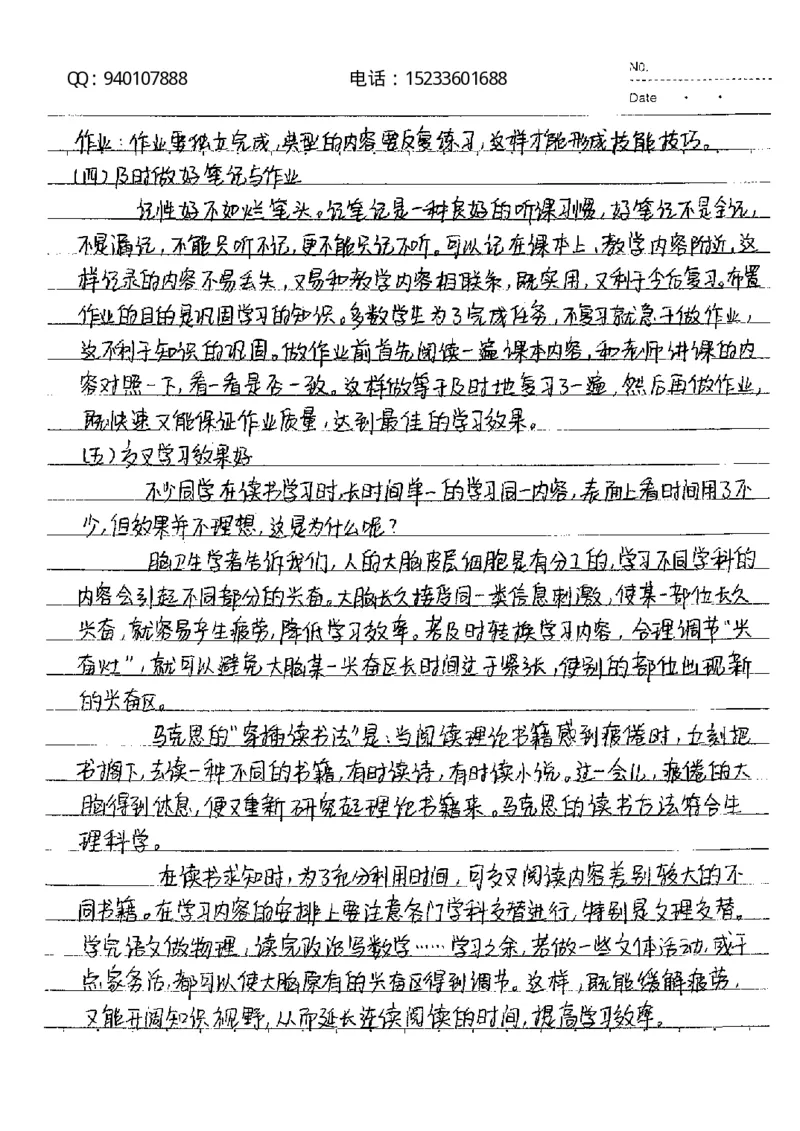 QQ：940107888 电话：15233601688 No.
Date · ·
作业：作业要独立完成，典型的内容要反复练习，这样才能形成技能技巧。
（四）及时做好笔记与作业
记性好不如烂笔头。记笔记是一种良好的听课习惯，好笔记不是全记，
不是漏记，不能只听不记，更不能只记不听。可以记在课本上、教学内容附近，这
样记录的内容不易丢失，又易和教学内容相联系，既实用，又利于今后复习。布置
作业的目的是巩固学习的知识。多数学生为了完成任务，不复习就急于做作业，
这不利于知识的巩固。做作业前首先阅读一遍课本内容，和老师讲课的内
容对照一下，看一看是否一致。这样做等于及时地复习了一遍，然后再做作业，
既快速又能保证作业质量，达到最佳的学习效果。
（五）交叉学习效果好
不少同学在读书学习时，长时间单一的学习同一内容，表面上看时间用了不
少，但效果并不理想，这是为什么呢？
脑卫生学者告诉我们，人的大脑皮层细胞是有分工的，学习不同学科的
内容会引起不同部分的兴奋。大脑长久接受同一类信息刺激，使某一部位长久
兴奋，就容易产生疲劳，降低学习效率。若及时转换学习内容，合理调节“兴
奋灶”，就可以避免大脑某一兴奋区长时间过于紧张，使别的部位出现新
的兴奋区。
马克思的“穿插读书法”是：当阅读理论书籍感到疲倦时，立刻把
书搁下，去读一种不同的书籍，有时读诗，有时读小说。过一会儿，疲倦的大
脑得到休息，便又重新研究起理论书籍来。马克思的读书方法符合生
理科学。
在读书求知时，为了充分利用时间，可交叉阅读内容差别较大的不
同书籍。在学习内容的安排上要注意各门学科交替进行，特别是文理交替。
学完语文做物理，读完政治写数学……学习之余，若做一些文体活动，或干
点家务活，都可以使大脑原有的兴奋区得到调节。这样，既能缓解疲劳，
又能开阔知识视野，从而延长连续阅读的时间，提高学习效率。